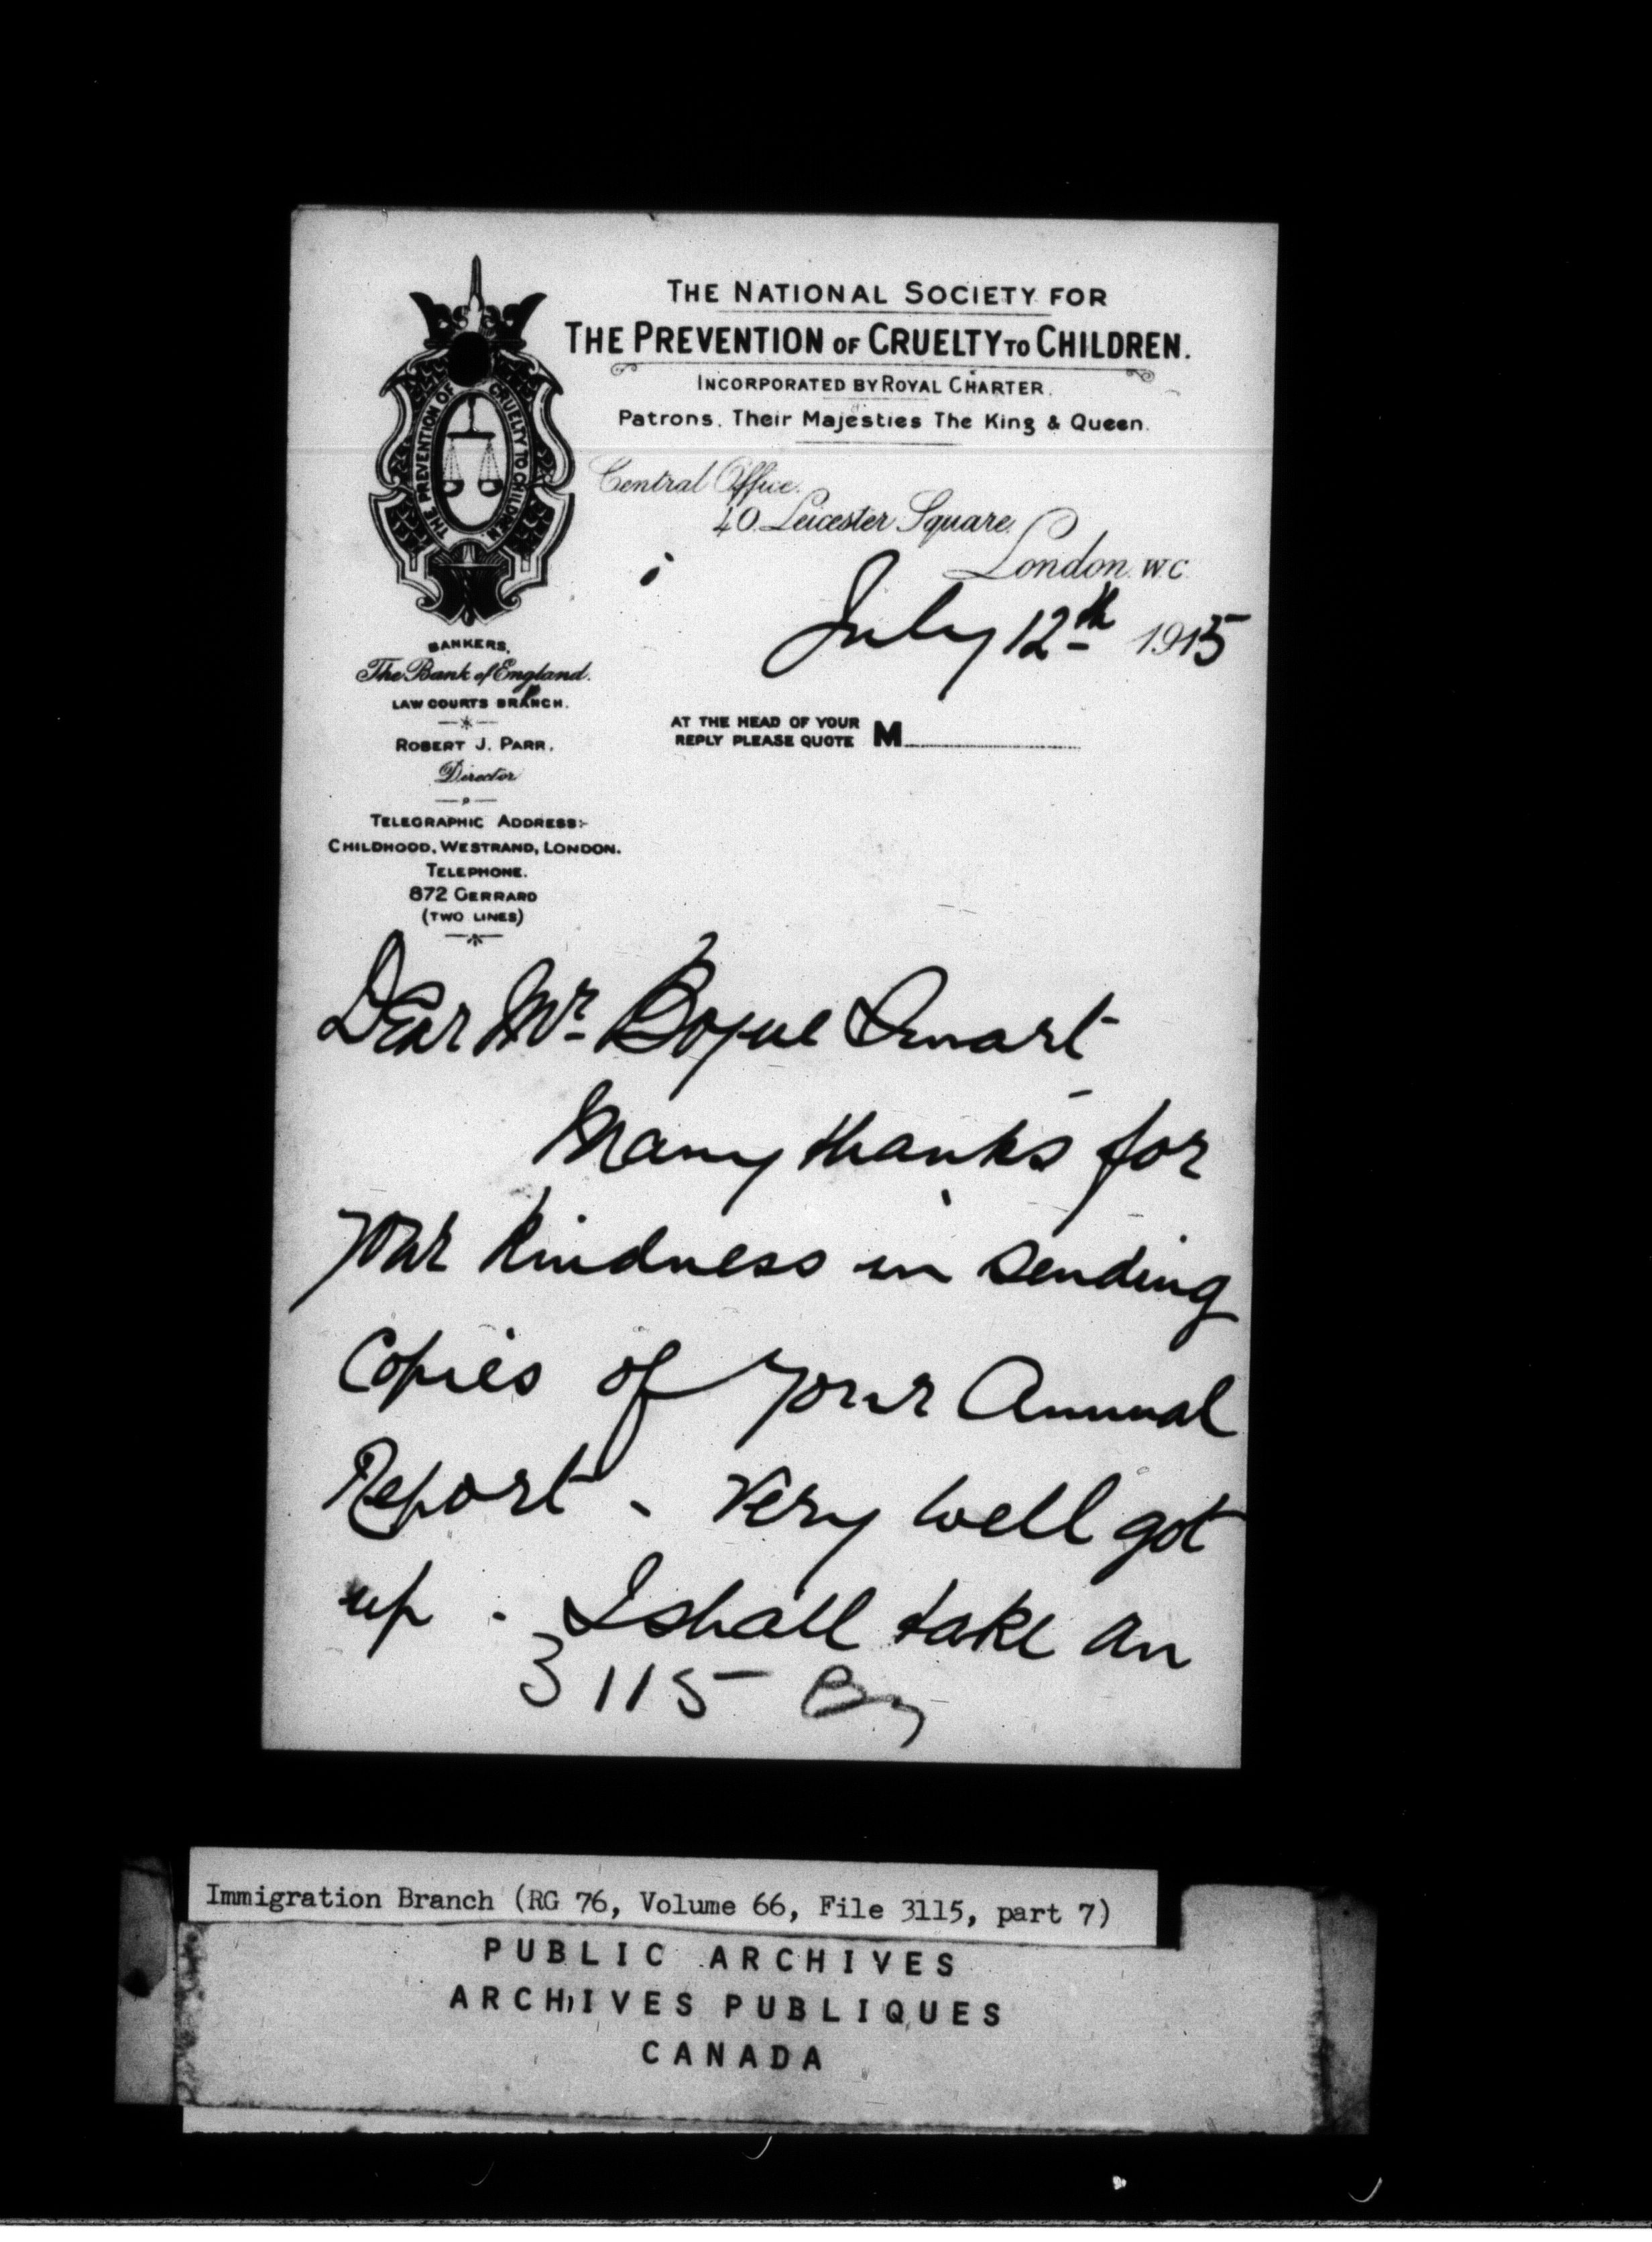 THE NATIONAL SOCIETY FOR
THE PREVENTION OF CRUELTY TO CHILDREN.
INCORPORATED BY ROYAL CHARTER.
Patrons. Their Majesties The King & Queen.
THE PREVENTION OF CRUELTY TO CHILDREN.
Central Office.
40. Leicester Square.
London. W.C.
July 12th 1915
BANKERS,
The Bank of England.
LAW COURTS BRANCH.
ROBERT J. PARR.
Director
TELEGRAPHIC ADDRESS:-
CHILDHOOD, WESTRAND, LONDON.
TELEPHONE.
872 GERRARD
(TWO LINES)
AT THE HEAD OF YOUR
REPLY PLEASE QUOTE M
Dear Mr Bogue Smart
Many thanks for
your kindness in sending
Copies of your Annual
Report - Very well got
up. I shall take an
3115
Immigration Branch (RG 76, Volume 66, File 3115, part 7)
PUBLIC ARCHIVES
ARCHIVES PUBLIQUES
CANADA